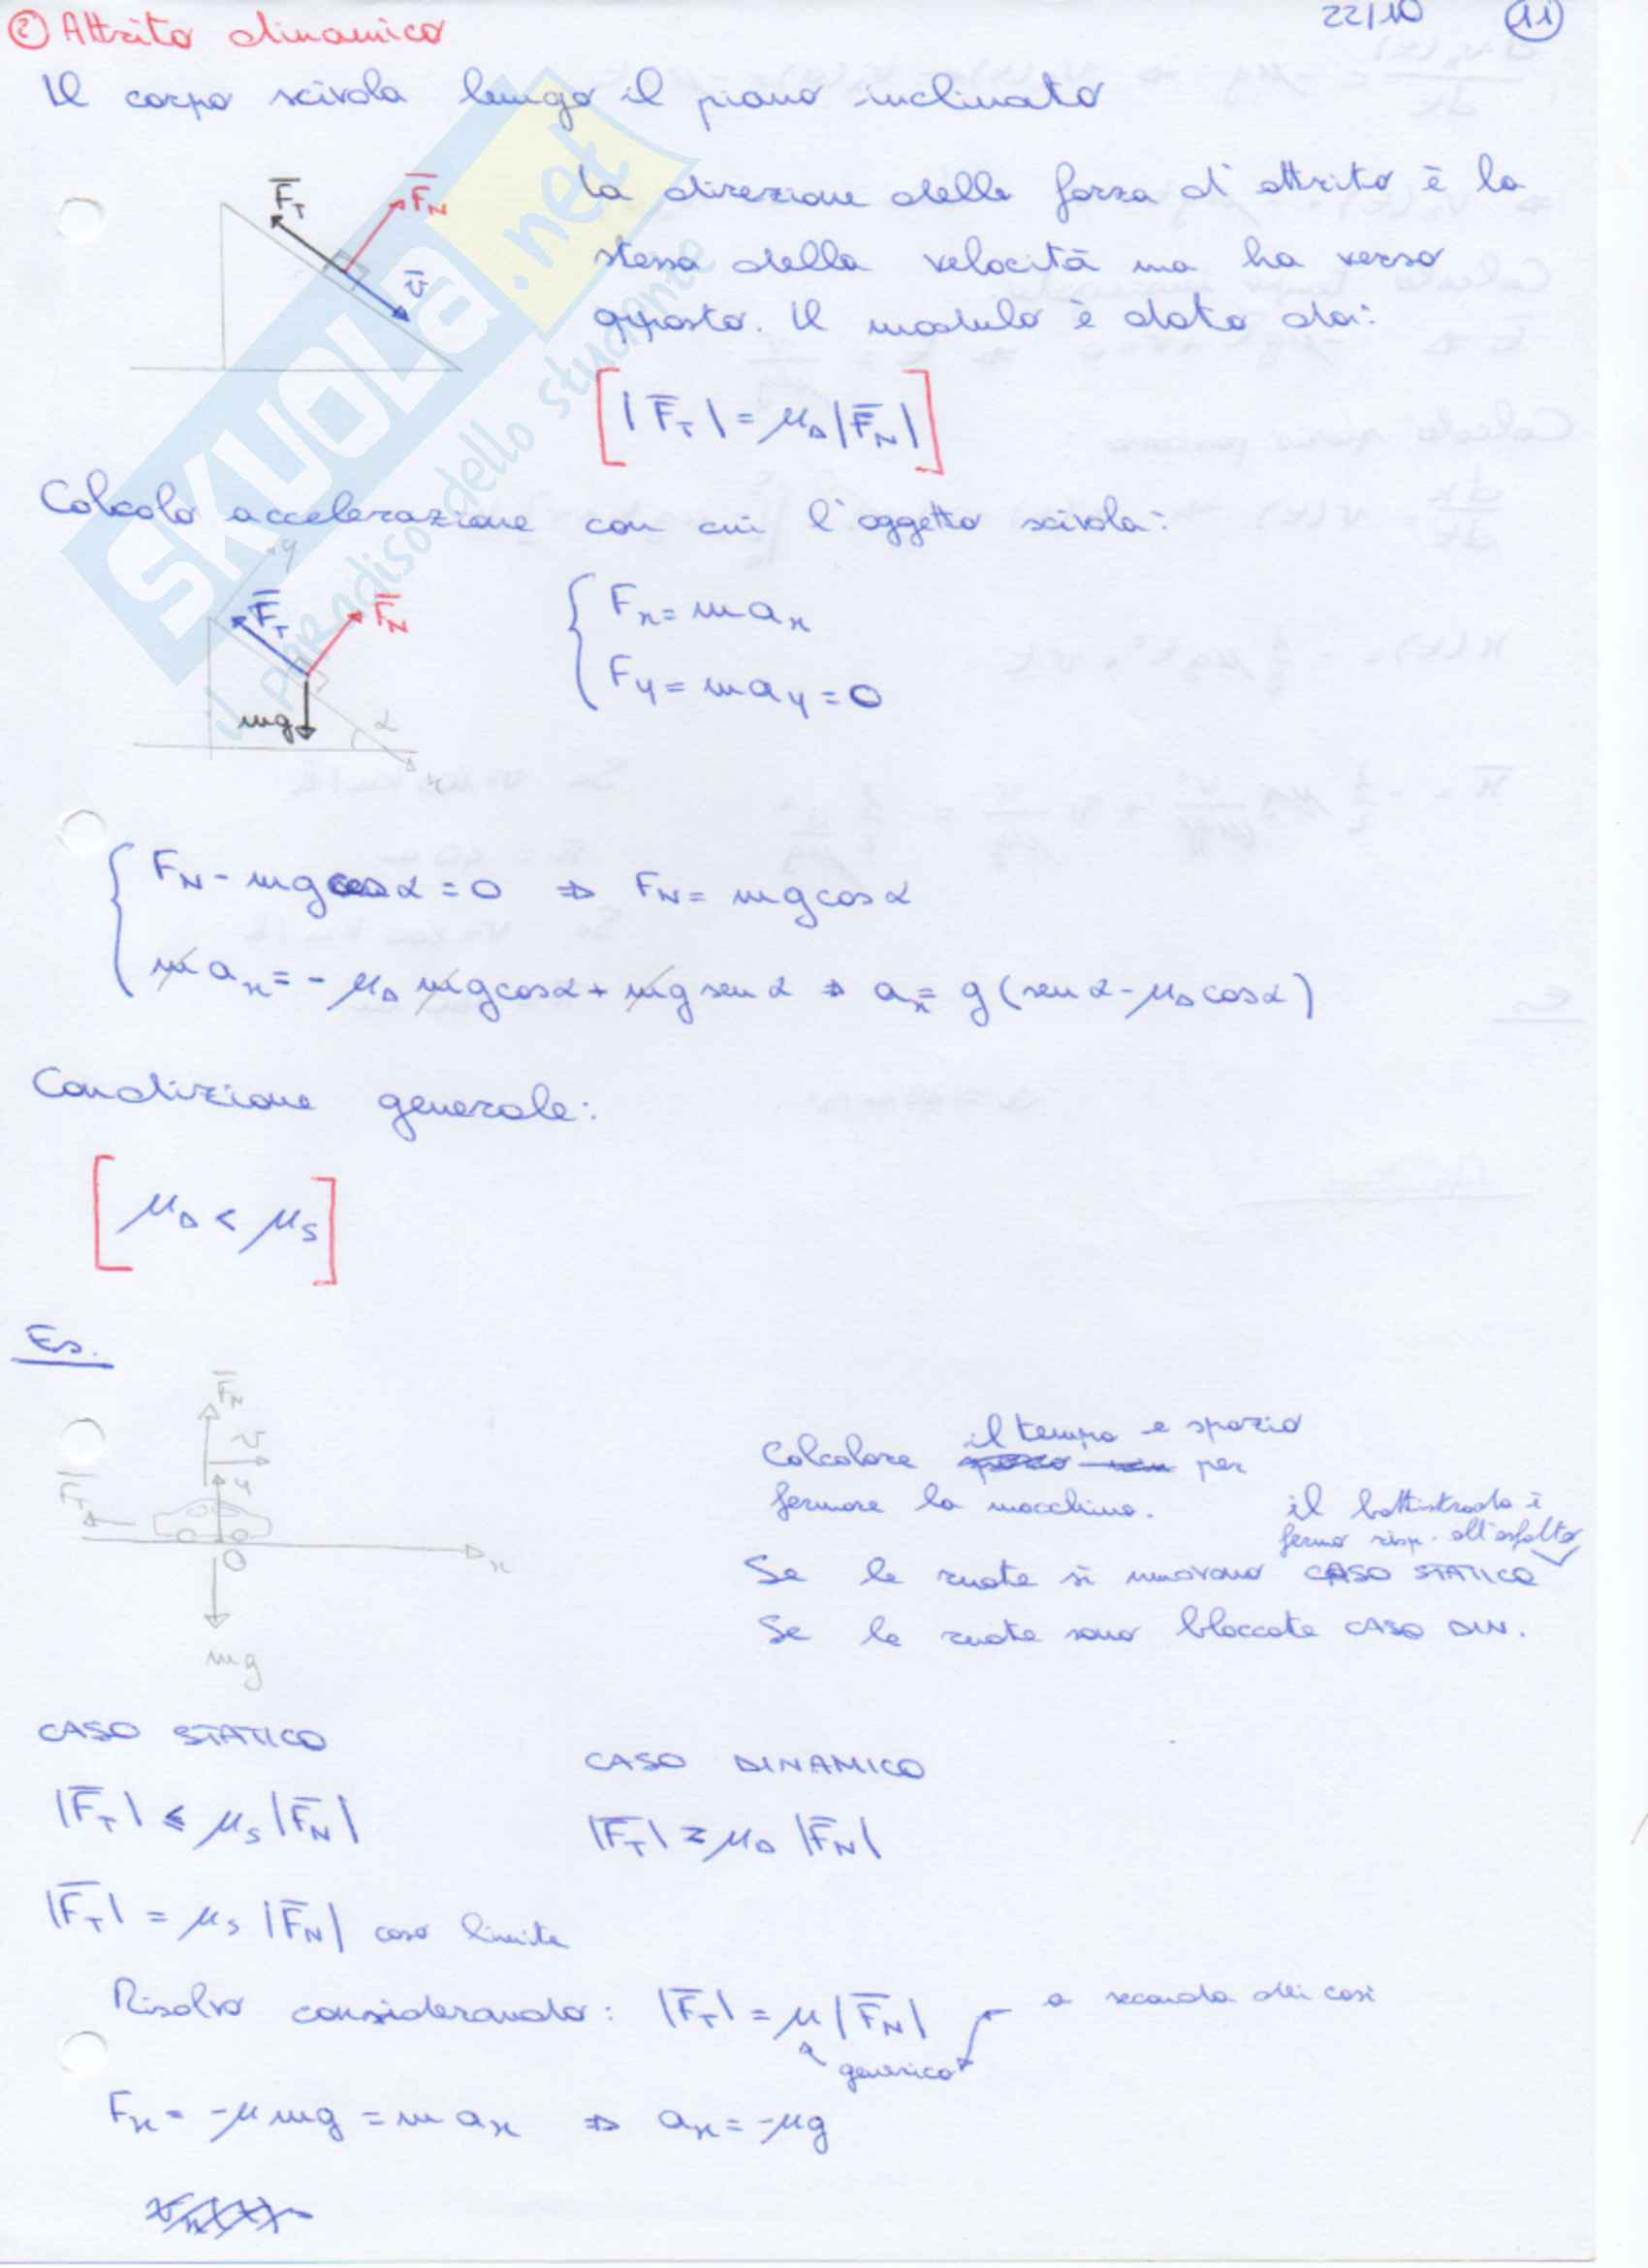 22/10 11
② Attrito dinamico
Il corpo scivola lungo il piano inclinato
F̅_T F̅_N v̅
La direzione della forza d'attrito è la
stessa della velocità ma ha verso
opposto. Il modulo è dato da:
[|F̅_T| = μ_D |F̅_N|]
Calcolo accelerazione con cui l'oggetto scivola:
y F̅_T F̅_N mg α x
{ F_x = m a_x
F_y = m a_y = 0
{ F_N - mg cos α = 0 ⇒ F_N = mg cos α
m a_x = - μ_D mg cos α + mg sen α ⇒ a_x = g (sen α - μ_D cos α)
Condizione generale:
[μ_D < μ_S]
Es.
F̅_N
v
y
F̅_T
O x
mg
Calcolare il tempo e spazio per
fermare la macchina.
il battistrada è
fermo risp. all'asfalto
Se le ruote si muovono CASO STATICO
Se le ruote sono bloccate CASO DIN.
CASO STATICO
CASO DINAMICO
|F̅_T| ≤ μ_S |F̅_N|
|F̅_T| = μ_D |F̅_N|
|F̅_T| = μ_S |F̅_N| caso limite
Risolvo considerando: |F̅_T| = μ |F̅_N| a seconda dei casi
generico
F_x = -μ mg = m a_x ⇒ a_x = -μg
SKUOLA.net
il paradiso dello studente